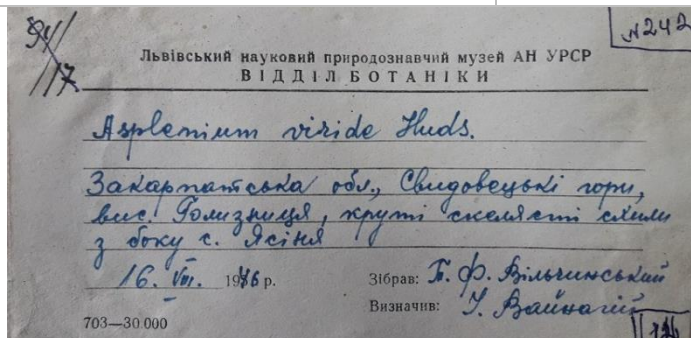 94/17
№242
Львівський науковий природознавчий музей АН УРСР
ВІДДІЛ БОТАНІКИ
Asplenium viride Huds.
Закарпатська обл., Свидовецькі гори,
вис. Голизниця, круті скелясті схили
з боку с. Ясіня
16. VIII. 1946 р.
Зібрав: Б. Ф. Вільчинський
Визначив: І. Вайнагій
703—30.000